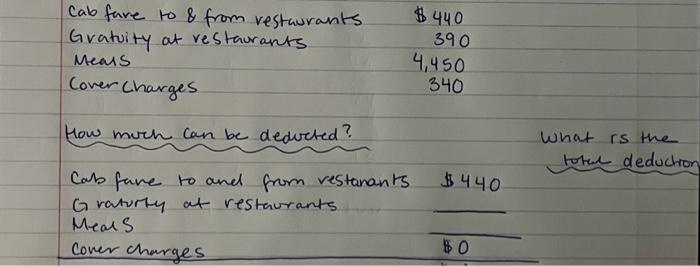 Cab fare to & from restaurants $440
Gratuity at restaurants 390
Meals 4,450
Cover charges 340
How much can be deducted?
What is the
total deduction
Cab fare to and from restaurants $440
Gratuity at restaurants
Meals
Cover charges $0